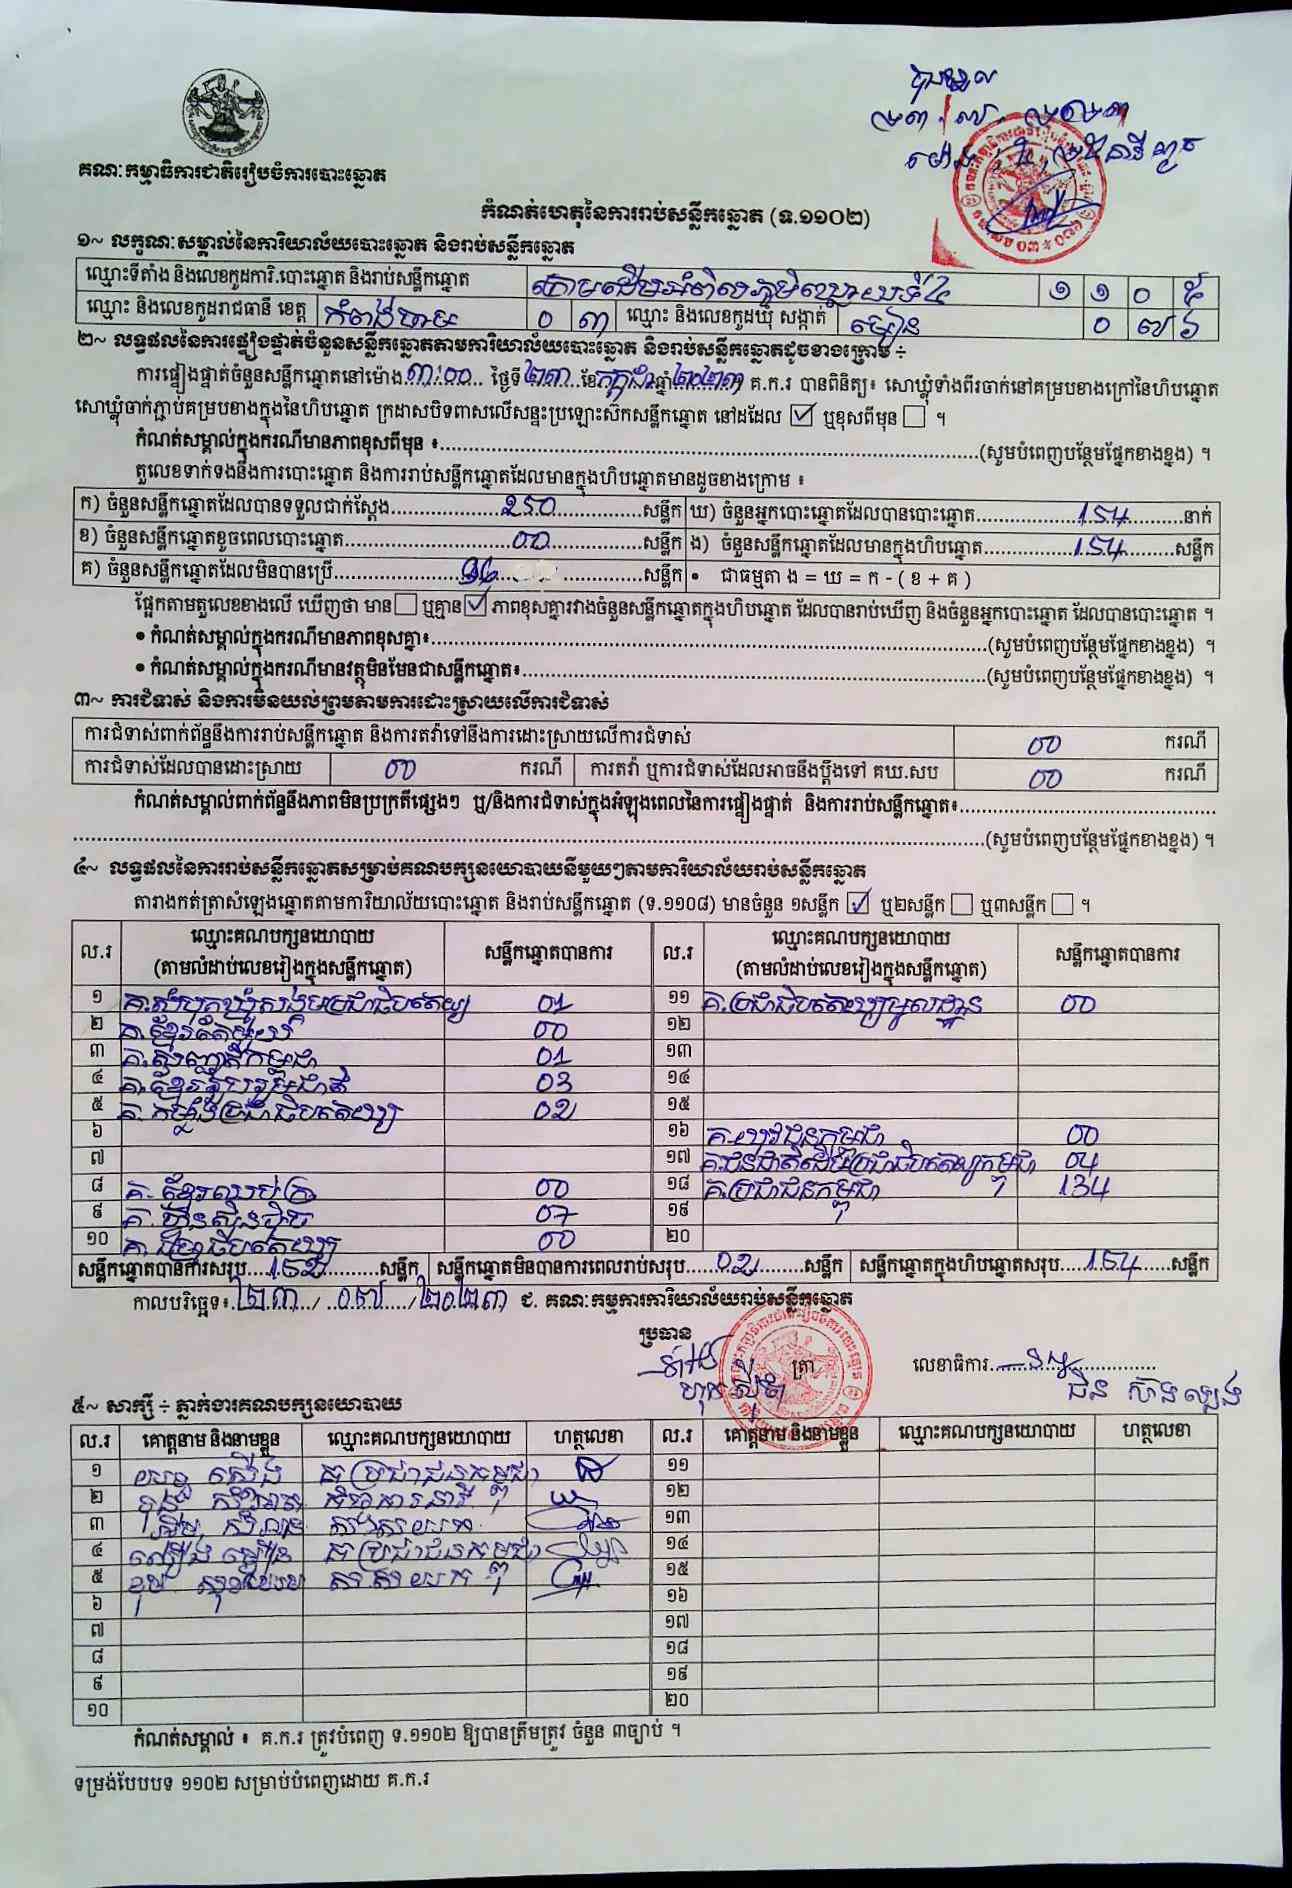 គណៈកម្មាធិការជាតិរៀបចំការបោះឆ្នោត
កំណត់ហេតុនៃការរាប់សន្លឹកឆ្នោត (ទ.១១០២)
១~ លក្ខណៈសម្គាល់នៃការិយាល័យបោះឆ្នោត និងរាប់សន្លឹកឆ្នោត
ឈ្មោះទីតាំង និងលេខកូដការិ.បោះឆ្នោត និងរាប់សន្លឹកឆ្នោត ១ ១ ០ ៥
ឈ្មោះ និងលេខកូដរាជធានី ខេត្ត កំពង់ចាម ០ ៣ ឈ្មោះ និងលេខកូដឃុំ សង្កាត់ ០ ៧ ៦
២~ លទ្ធផលនៃការផ្ទៀងផ្ទាត់ចំនួនសន្លឹកឆ្នោតតាមការិយាល័យបោះឆ្នោត និងរាប់សន្លឹកឆ្នោតដូចខាងក្រោម ÷
ការផ្ទៀងផ្ទាត់ចំនួនសន្លឹកឆ្នោតនៅម៉ោង ៣:០០ ថ្ងៃទី ២៣ ខែ កក្កដា ឆ្នាំ ២០២៣ គ.ក.រ បានពិនិត្យ៖ សោឃ្លុំទាំងពីរចាក់នៅគម្របខាងក្រៅនៃហិបឆ្នោត
សោឃ្លុំចាក់ភ្ជាប់គម្របខាងក្នុងនៃហិបឆ្នោត ក្រដាសបិទពាសលើសន្ទះប្រឡោះស៊កសន្លឹកឆ្នោត នៅដដែល ☑ ឬខុសពីមុន ☐ ។
កំណត់សម្គាល់ក្នុងករណីមានភាពខុសពីមុន ៖ (សូមបំពេញបន្ថែមផ្នែកខាងខ្នង) ។
តួលេខទាក់ទងនឹងការបោះឆ្នោត និងការរាប់សន្លឹកឆ្នោតដែលមានក្នុងហិបឆ្នោតមានដូចខាងក្រោម ៖
ក) ចំនួនសន្លឹកឆ្នោតដែលបានទទួលជាក់ស្តែង 250 សន្លឹក ឃ) ចំនួនអ្នកបោះឆ្នោតដែលបានបោះឆ្នោត 154 នាក់
ខ) ចំនួនសន្លឹកឆ្នោតខូចពេលបោះឆ្នោត 00 សន្លឹក ង) ចំនួនសន្លឹកឆ្នោតដែលមានក្នុងហិបឆ្នោត 154 សន្លឹក
គ) ចំនួនសន្លឹកឆ្នោតដែលមិនបានប្រើ 96 សន្លឹក • ជាធម្មតា ង = ឃ = ក - ( ខ + គ )
ផ្អែកតាមតួលេខខាងលើ ឃើញថា មាន ☐ ឬគ្មាន ☑ ភាពខុសគ្នារវាងចំនួនសន្លឹកឆ្នោតក្នុងហិបឆ្នោត ដែលបានរាប់ឃើញ និងចំនួនអ្នកបោះឆ្នោត ដែលបានបោះឆ្នោត ។
• កំណត់សម្គាល់ក្នុងករណីមានភាពខុសគ្នា៖ (សូមបំពេញបន្ថែមផ្នែកខាងខ្នង) ។
• កំណត់សម្គាល់ក្នុងករណីមានវត្ថុមិនមែនជាសន្លឹកឆ្នោត៖ (សូមបំពេញបន្ថែមផ្នែកខាងខ្នង) ។
៣~ ការជំទាស់ និងការមិនយល់ព្រមតាមការដោះស្រាយលើការជំទាស់
ការជំទាស់ពាក់ព័ន្ធនឹងការរាប់សន្លឹកឆ្នោត និងការតវ៉ាទៅនឹងការដោះស្រាយលើការជំទាស់ 00 ករណី
ការជំទាស់ដែលបានដោះស្រាយ 00 ករណី ការតវ៉ា ឬការជំទាស់ដែលអាចនឹងប្តឹងទៅ គឃ.សប 00 ករណី
កំណត់សម្គាល់ពាក់ព័ន្ធនឹងភាពមិនប្រក្រតីផ្សេងៗ ឬ/និងការជំទាស់ក្នុងអំឡុងពេលនៃការផ្ទៀងផ្ទាត់ និងការរាប់សន្លឹកឆ្នោត៖
(សូមបំពេញបន្ថែមផ្នែកខាងខ្នង) ។
៤~ លទ្ធផលនៃការរាប់សន្លឹកឆ្នោតសម្រាប់គណបក្សនយោបាយនីមួយៗតាមការិយាល័យរាប់សន្លឹកឆ្នោត
តារាងកត់ត្រាសំឡេងឆ្នោតតាមការិយាល័យបោះឆ្នោត និងរាប់សន្លឹកឆ្នោត (ទ.១១០៨) មានចំនួន ១សន្លឹក ☑ ឬ២សន្លឹក ☐ ឬ៣សន្លឹក ☐ ។
ល.រ ឈ្មោះគណបក្សនយោបាយ (តាមលំដាប់លេខរៀងក្នុងសន្លឹកឆ្នោត) សន្លឹកឆ្នោតបានការ ល.រ ឈ្មោះគណបក្សនយោបាយ (តាមលំដាប់លេខរៀងក្នុងសន្លឹកឆ្នោត) សន្លឹកឆ្នោតបានការ
១ គ.សំបុកឃ្មុំសង្គមប្រជាធិបតេយ្យ 01 ១១ គ.ប្រជាធិបតេយ្យមូលដ្ឋាន 00
២ គ.ខ្មែរតែមួយ 00 ១២
៣ 01 ១៣
៤ គ.ខ្មែររួបរួមជាតិ 03 ១៤
៥ គ.កម្លាំងប្រជាធិបតេយ្យ 02 ១៥
៦ ១៦ គ.យុវជនកម្ពុជា 00
៧ ១៧ គ.ជនជាតិដើមប្រជាធិបតេយ្យកម្ពុជា 04
៨ គ. ខ្មែរឈប់ក្រ 00 ១៨ គ.ប្រជាជនកម្ពុជា 134
៩ គ.ហ៊្វុនស៊ិនប៉ិច 07 ១៩
១០ 00 ២០
សន្លឹកឆ្នោតបានការសរុប 152 សន្លឹក សន្លឹកឆ្នោតមិនបានការពេលរាប់សរុប 02 សន្លឹក សន្លឹកឆ្នោតក្នុងហិបឆ្នោតសរុប 154 សន្លឹក
កាលបរិច្ឆេទ៖ ២៣/ ០៧/ ២០២៣ ជ. គណៈកម្មការការិយាល័យរាប់សន្លឹកឆ្នោត
ប្រធាន
ត្រា
លេខាធិការ
៥~ សាក្សី ÷ ភ្នាក់ងារគណបក្សនយោបាយ
ល.រ គោត្តនាម និងនាមខ្លួន ឈ្មោះគណបក្សនយោបាយ ហត្ថលេខា ល.រ គោត្តនាម និងនាមខ្លួន ឈ្មោះគណបក្សនយោបាយ ហត្ថលេខា
១ គ ប្រជាជនកម្ពុជា ១១
២ ១២
៣ ១៣
៤ គ ប្រជាជនកម្ពុជា ១៤
៥ ១៥
៦ ១៦
៧ ១៧
៨ ១៨
៩ ១៩
១០ ២០
កំណត់សម្គាល់ ៖ គ.ក.រ ត្រូវបំពេញ ទ.១១០២ ឱ្យបានត្រឹមត្រូវ ចំនួន ៣ច្បាប់ ។
ទម្រង់បែបបទ ១១០២ សម្រាប់បំពេញដោយ គ.ក.រ